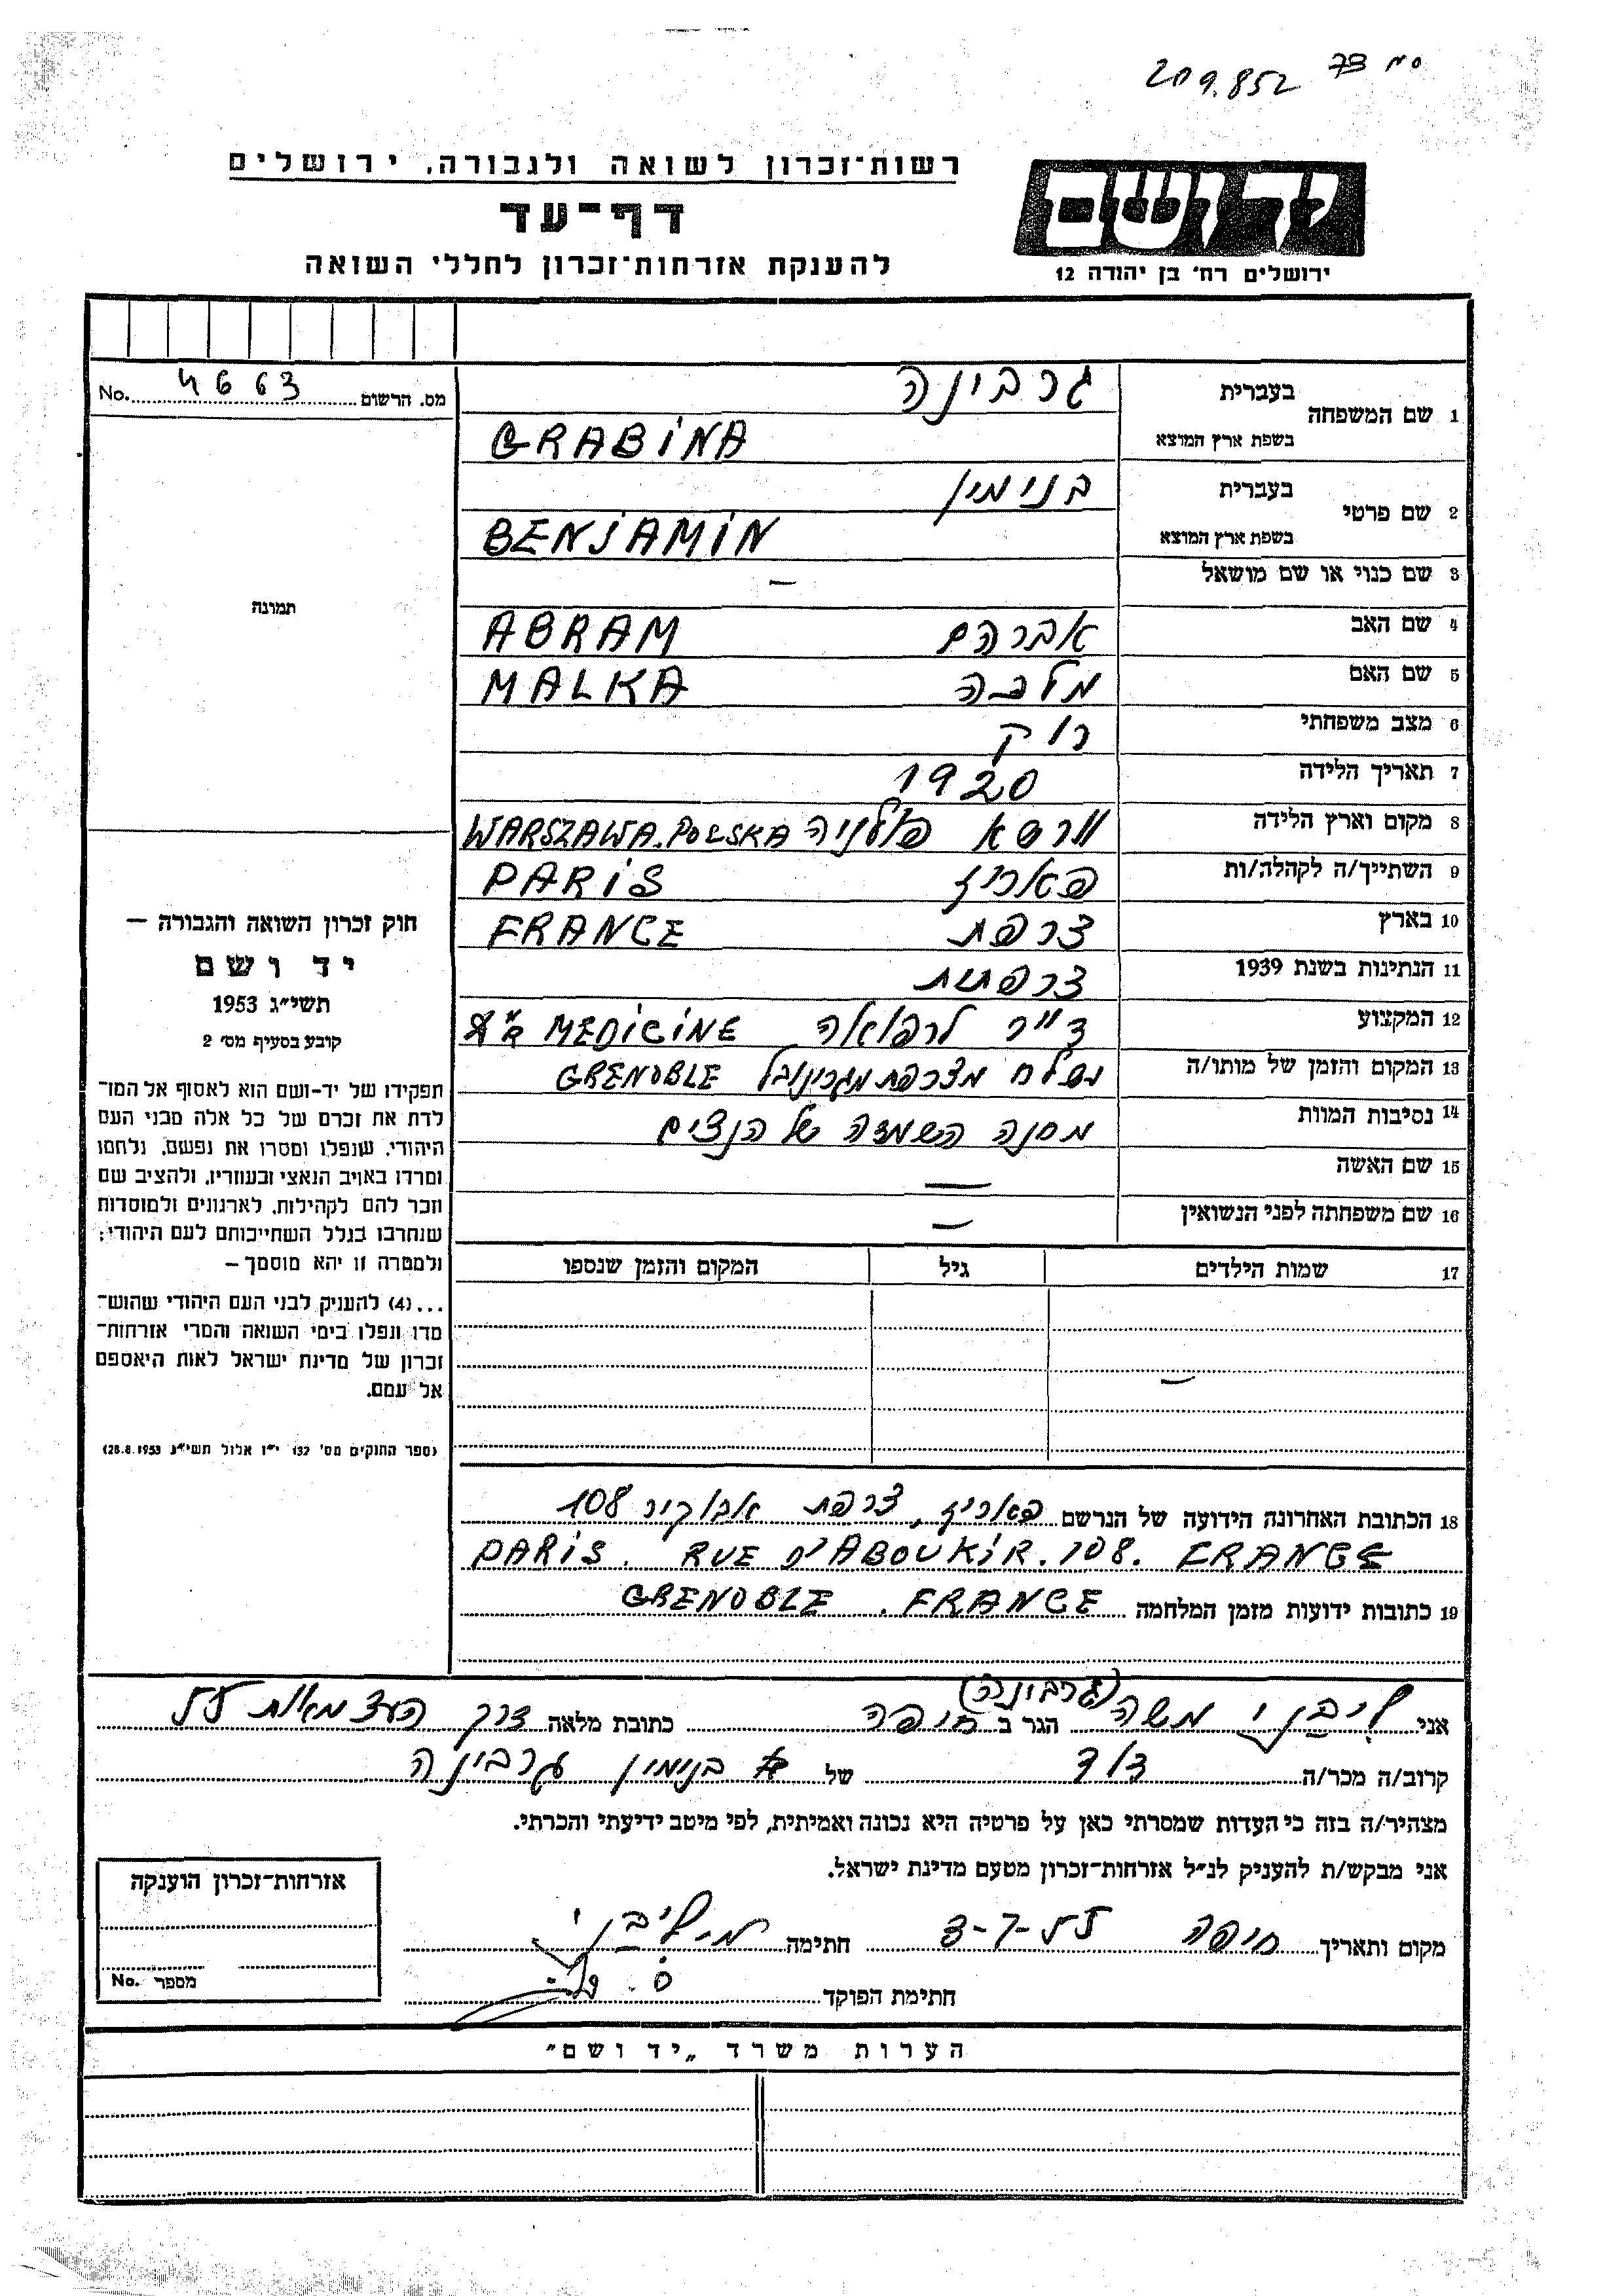 209.852 סמ 73
יד ושם
ירושלים רח' בן יהודה 12
רשות־זכרון לשואה ולגבורה, ירושלים
דף־עד
להענקת אזרחות־זכרון לחללי השואה
מס. הרשום 4663 No.
1 שם המשפחה בעברית גרבינה
בשפת ארץ המוצא GRABINA
2 שם פרטי בעברית בנימין
בשפת ארץ המוצא BENJAMIN
3 שם כנוי או שם מושאל –
4 שם האב אברהם ABRAM
5 שם האם מלכה MALKA
6 מצב משפחתי רוק
7 תאריך הלידה 1920
8 מקום וארץ הלידה וורשא פולניה WARSZAWA. POLSKA
9 השתייך/ה לקהלה/ות פאריז PARIS
10 בארץ צרפת FRANCE
11 הנתינות בשנת 1939 צרפתית
12 המקצוע ד"ר לרפואה MEDICINE
13 המקום והזמן של מותו/ה נשלח מצרפת מגרינובל GRENOBLE
14 נסיבות המוות מחנה השמדה של הנצים
15 שם האשה –
16 שם משפחתה לפני הנשואין –
17 שמות הילדים גיל המקום והזמן שנספו
–
18 הכתובת האחרונה הידועה של הנרשם פאריז, צרפת אבוקיר 108
PARIS. RUE D'ABOUKIR. 108. FRANCE
19 כתובות ידועות מזמן המלחמה GRENOBLE. FRANCE
תמונה
חוק זכרון השואה והגבורה –
יד ושם
תשי"ג 1953
קובע בסעיף מס' 2
תפקידו של יד-ושם הוא לאסוף אל המו־
לדת את זכרם של כל אלה מבני העם
היהודי, שנפלו ומסרו את נפשם, נלחמו
ומרדו באויב הנאצי ובעוזריו, ולהציב שם
וזכר להם לקהילות, לארגונים ולמוסדות
שנחרבו בגלל השתייכותם לעם היהודי;
ולמטרה זו יהא מוסמך –
...(4) להעניק לבני העם היהודי שהוש־
מדו ונפלו בימי השואה והמרי אזרחות־
זכרון של מדינת ישראל לאות היאספם
אל עמם.
(ספר החוקים מס' 132 י"ז אלול תשי"ג 28.8.1953)
(גרבינה)
אני ליבני משה הגר ב חיפה כתובת מלאה דרך העצמאות 55
קרוב/ה מכר/ה דוד של בנימין גרבינה
מצהיר/ה בזה כי העדות שמסרתי כאן על פרטיה היא נכונה ואמיתית, לפי מיטב ידיעתי והכרתי.
אני מבקש/ת להעניק לנ"ל אזרחות־זכרון מטעם מדינת ישראל.
מקום ותאריך חיפה 3-7-55 חתימה מ. ליבני
חתימת הפוקד
אזרחות־זכרון הוענקה
מספר No.
הערות משרד „יד ושם"